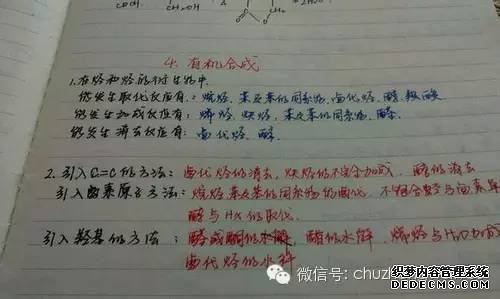 COOH CH₂OH
4. 有机合成
1. 在烃和烃的衍生物中
能发生取代反应有：烷烃、苯及苯的同系物、卤代烃、醇、羧酸
能发生加成反应有：烯烃、炔烃、苯及苯的同系物、醛
能发生消去反应有：卤代烃、醇
2. 引入C=C的方法：卤代烃的消去、炔烃的不完全加成、醇的消去
引入卤素原子方法：烷烃、苯及苯的同系物的卤代、不饱合烃与卤素单
醇与HX的取代
引入羟基的方法：醛或酮的 酯的水解 烯烃与H₂O加成
卤代烃的水解
微信号: chuz
织梦内容管理系统
DEDECMS.COM